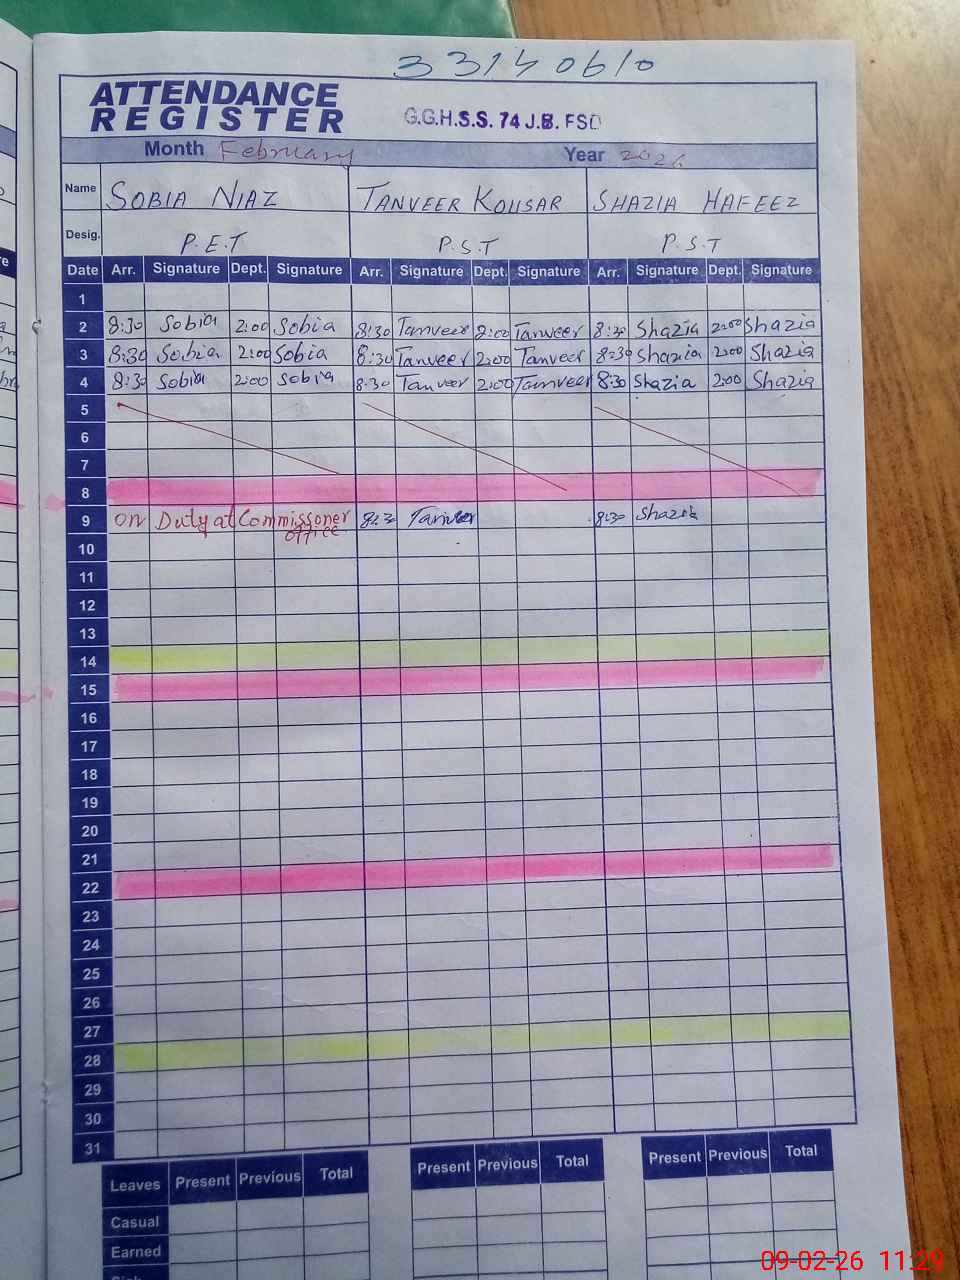 33140610
ATTENDANCE
REGISTER
G.G.H.S.S. 74 J.B. FSD
Month February Year 2026
Name SOBIA NIAZ TANVEER KOUSAR SHAZIA HAFEEZ
Desig. P.E.T P.S.T P.S.T
Date Arr. Signature Dept. Signature Arr. Signature Dept. Signature Arr. Signature Dept. Signature
1
2 8:30 Sobia 2:00 Sobia 8:30 Tanveer 2:00 Tanveer 8:30 Shazia 2:00 Shazia
3 8:30 Sobia 2:00 Sobia 8:30 Tanveer 2:00 Tanveer 8:30 Shazia 2:00 Shazia
4 8:30 Sobia 2:00 Sobia 8:30 Tanveer 2:00 Tanveer 8:30 Shazia 2:00 Shazia
5
6
7
8
9 on Duty at Commissoner 8:30 Tanveer 8:30 Shazia
office
10
11
12
13
14
15
16
17
18
19
20
21
22
23
24
25
26
27
28
29
30
31
Leaves Present Previous Total Present Previous Total Present Previous Total
Casual
Earned
09-02-26 11:29